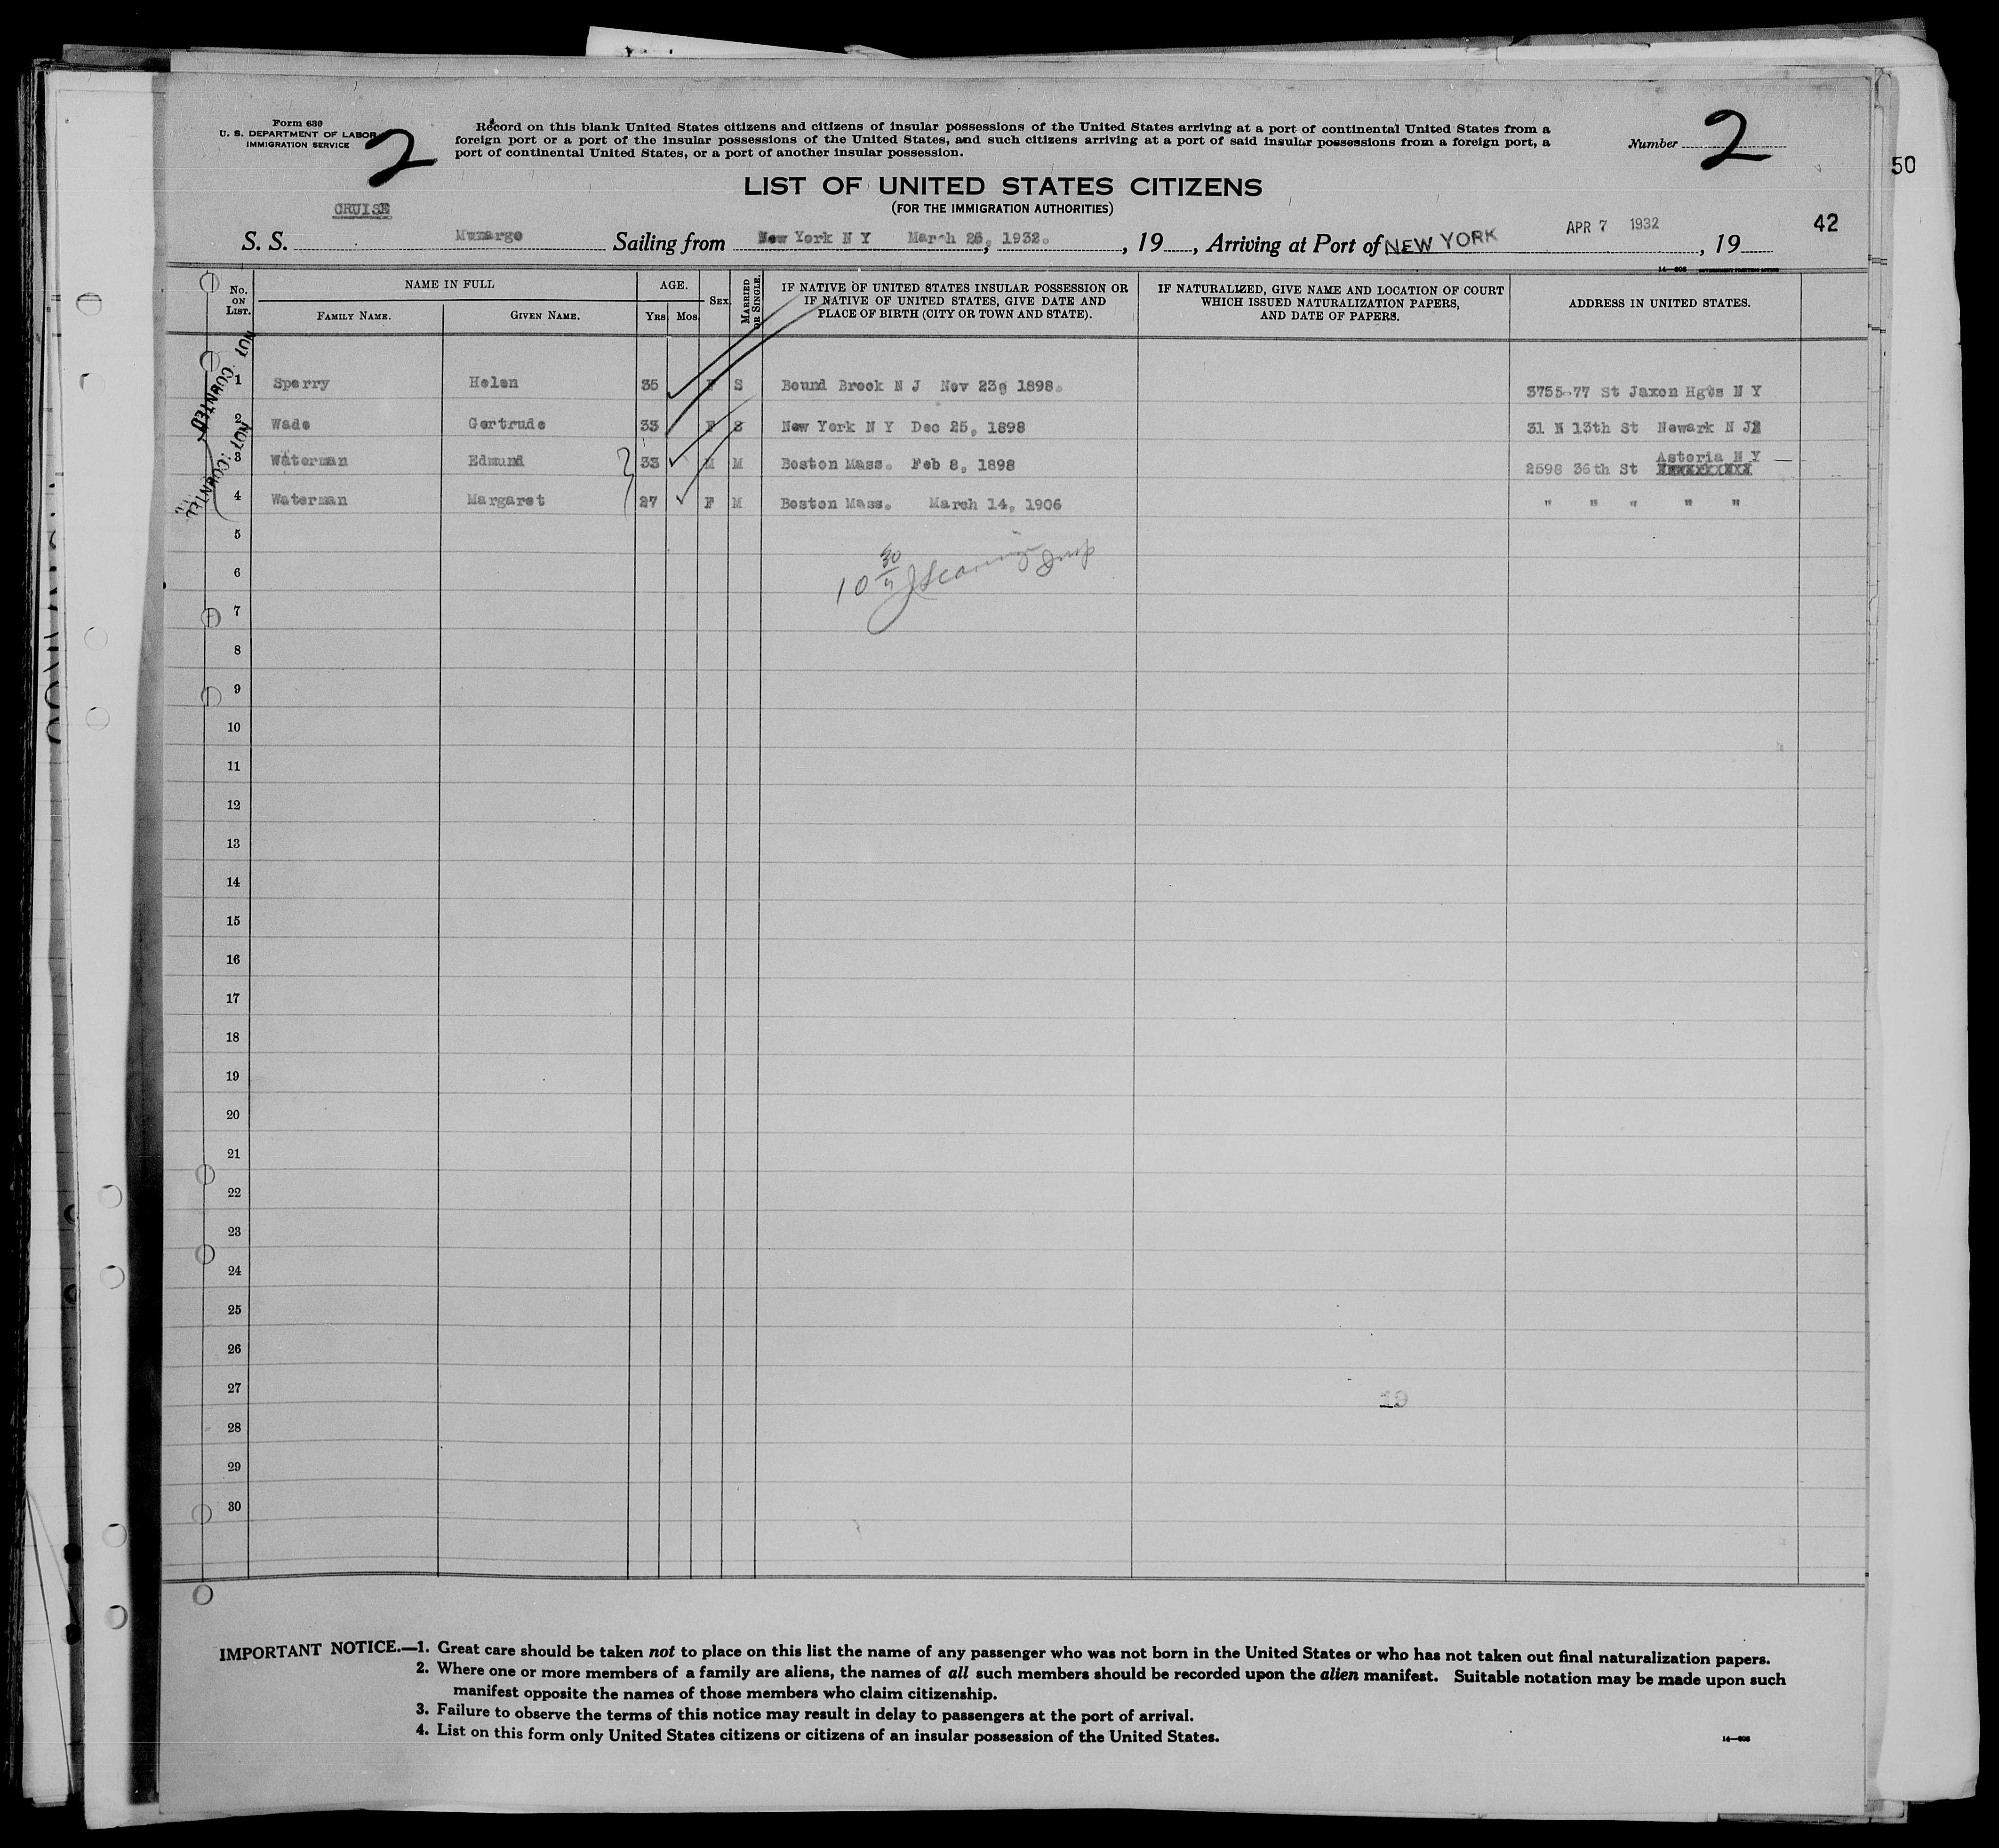 Form 630
U. S. DEPARTMENT OF LABOR
IMMIGRATION SERVICE
2
Record on this blank United States citizens and citizens of insular possessions of the United States arriving at a port of continental United States from a
foreign port or a port of the insular possessions of the United States, and such citizens arriving at a port of said insular possessions from a foreign port, a
port of continental United States, or a port of another insular possession.
Number 2
50
LIST OF UNITED STATES CITIZENS
(FOR THE IMMIGRATION AUTHORITIES)
CRUISE
S. S. Munargo Sailing from New York N Y March 26, 1932. , 19 , Arriving at Port of NEW YORK APR 7 1932 , 19
42
14—608 GOVERNMENT PRINTING OFFICE
No. ON LIST. NAME IN FULL AGE. SEX MARRIED OR SINGLE. IF NATIVE OF UNITED STATES INSULAR POSSESSION OR IF NATIVE OF UNITED STATES, GIVE DATE AND PLACE OF BIRTH (CITY OR TOWN AND STATE). IF NATURALIZED, GIVE NAME AND LOCATION OF COURT WHICH ISSUED NATURALIZATION PAPERS, AND DATE OF PAPERS. ADDRESS IN UNITED STATES.
FAMILY NAME. GIVEN NAME. YRS MOS
NOT COUNTED
NOT COUNTED
1 Sperry Helen 35 F S Bound Brook N J Nov 23, 1898. 3755-77 St Jaxon Hgts N Y
2 Wade Gertrude 33 F S New York N Y Dec 25, 1898 31 N 13th St Newark N J
3 Waterman Edmund 33 M M Boston Mass. Feb 8, 1898 2598 36th St Astoria N Y
4 Waterman Margaret 27 F M Boston Mass. March 14, 1906 " " " " "
5
6
10 30
7
8
9
10
11
12
13
14
15
16
17
18
19
20
21
22
23
24
25
26
27
19
28
29
30
IMPORTANT NOTICE.—1. Great care should be taken not to place on this list the name of any passenger who was not born in the United States or who has not taken out final naturalization papers.
2. Where one or more members of a family are aliens, the names of all such members should be recorded upon the alien manifest. Suitable notation may be made upon such
manifest opposite the names of those members who claim citizenship.
3. Failure to observe the terms of this notice may result in delay to passengers at the port of arrival.
4. List on this form only United States citizens or citizens of an insular possession of the United States.
14—608